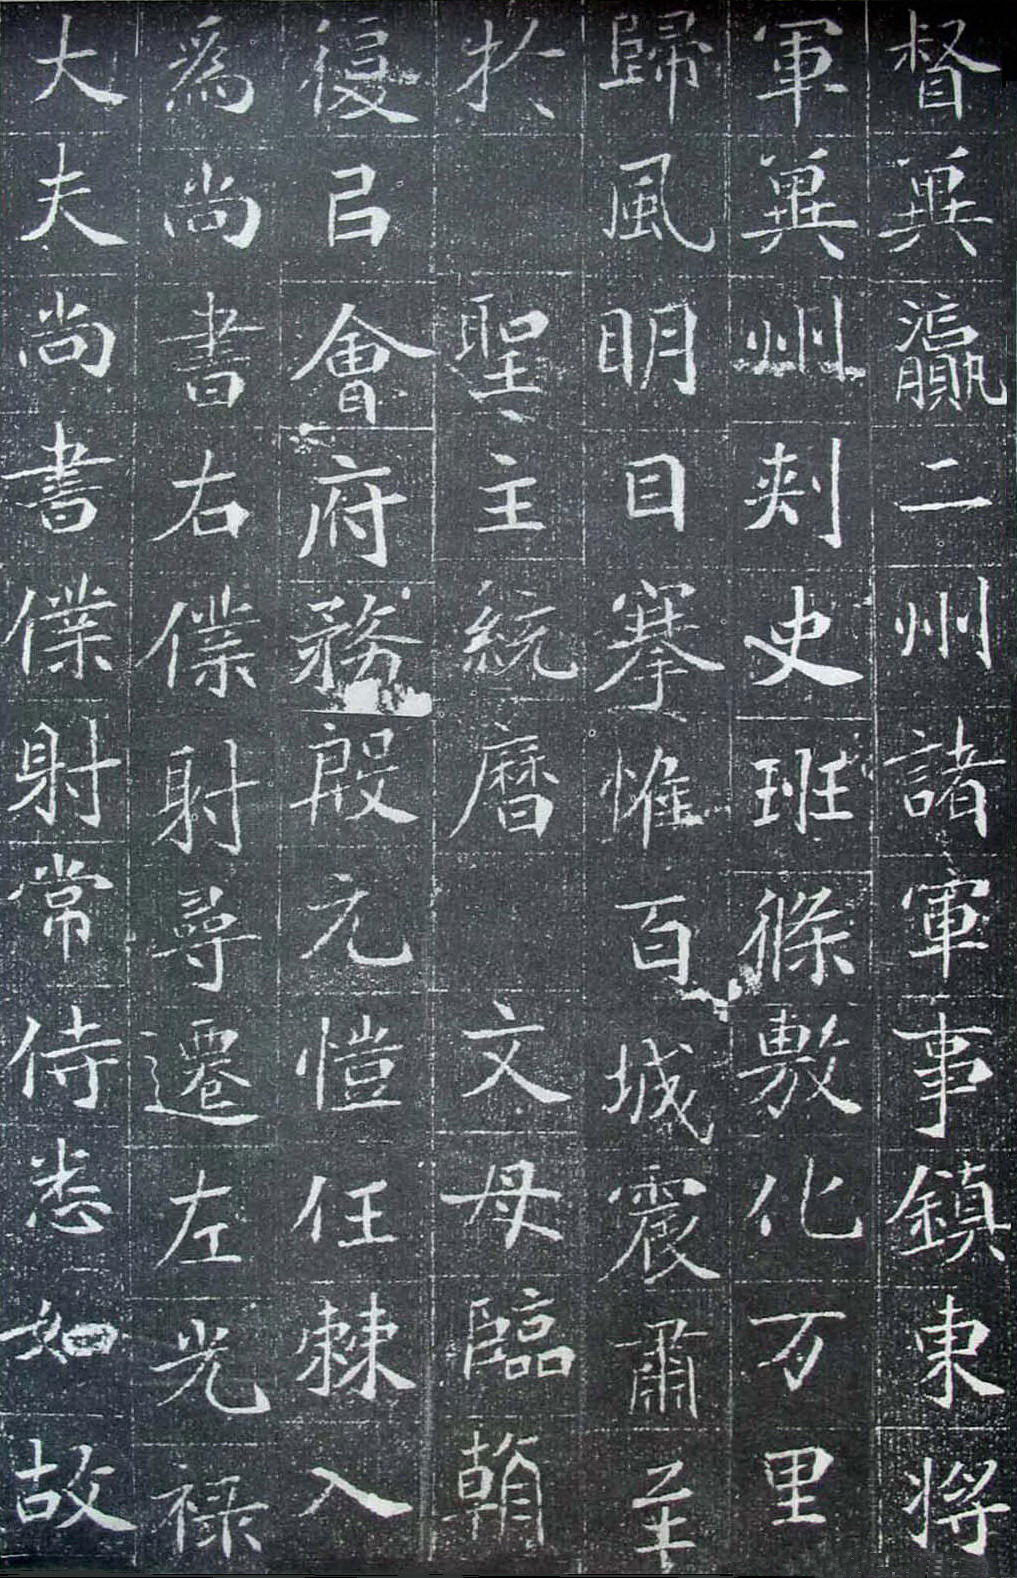 督冀瀛二州諸軍事鎮東將
軍冀州刺史班條敷化万里
歸風明目搴惟百城震肅至
於 聖主統曆 文母臨朝
復㠯會府務殷元愷任棘入
為尚書右僕射尋遷左光祿
大夫尚書僕射常侍悉如故